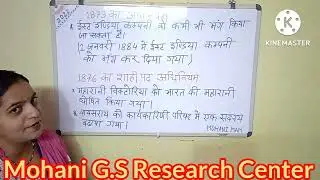 1873 का
* ईस्ट इण्डिया कम्पनी को कभी भी भंग किया
जा सकता है।
(2 जनवरी 1884 में ईस्ट इण्डिया कम्पनी
को भंग कर दिया गया)
1876 का शाही पद अधिनियम
* महारानी विक्टोरिया को भारत की महारानी
घोषित किया गया।
* वायसराय की कार्यकारिणी परिषद में एक सदस्य
बढ़ाया गया।
MOHANI MAM
KINEMASTER
Mohani G.S Research Center